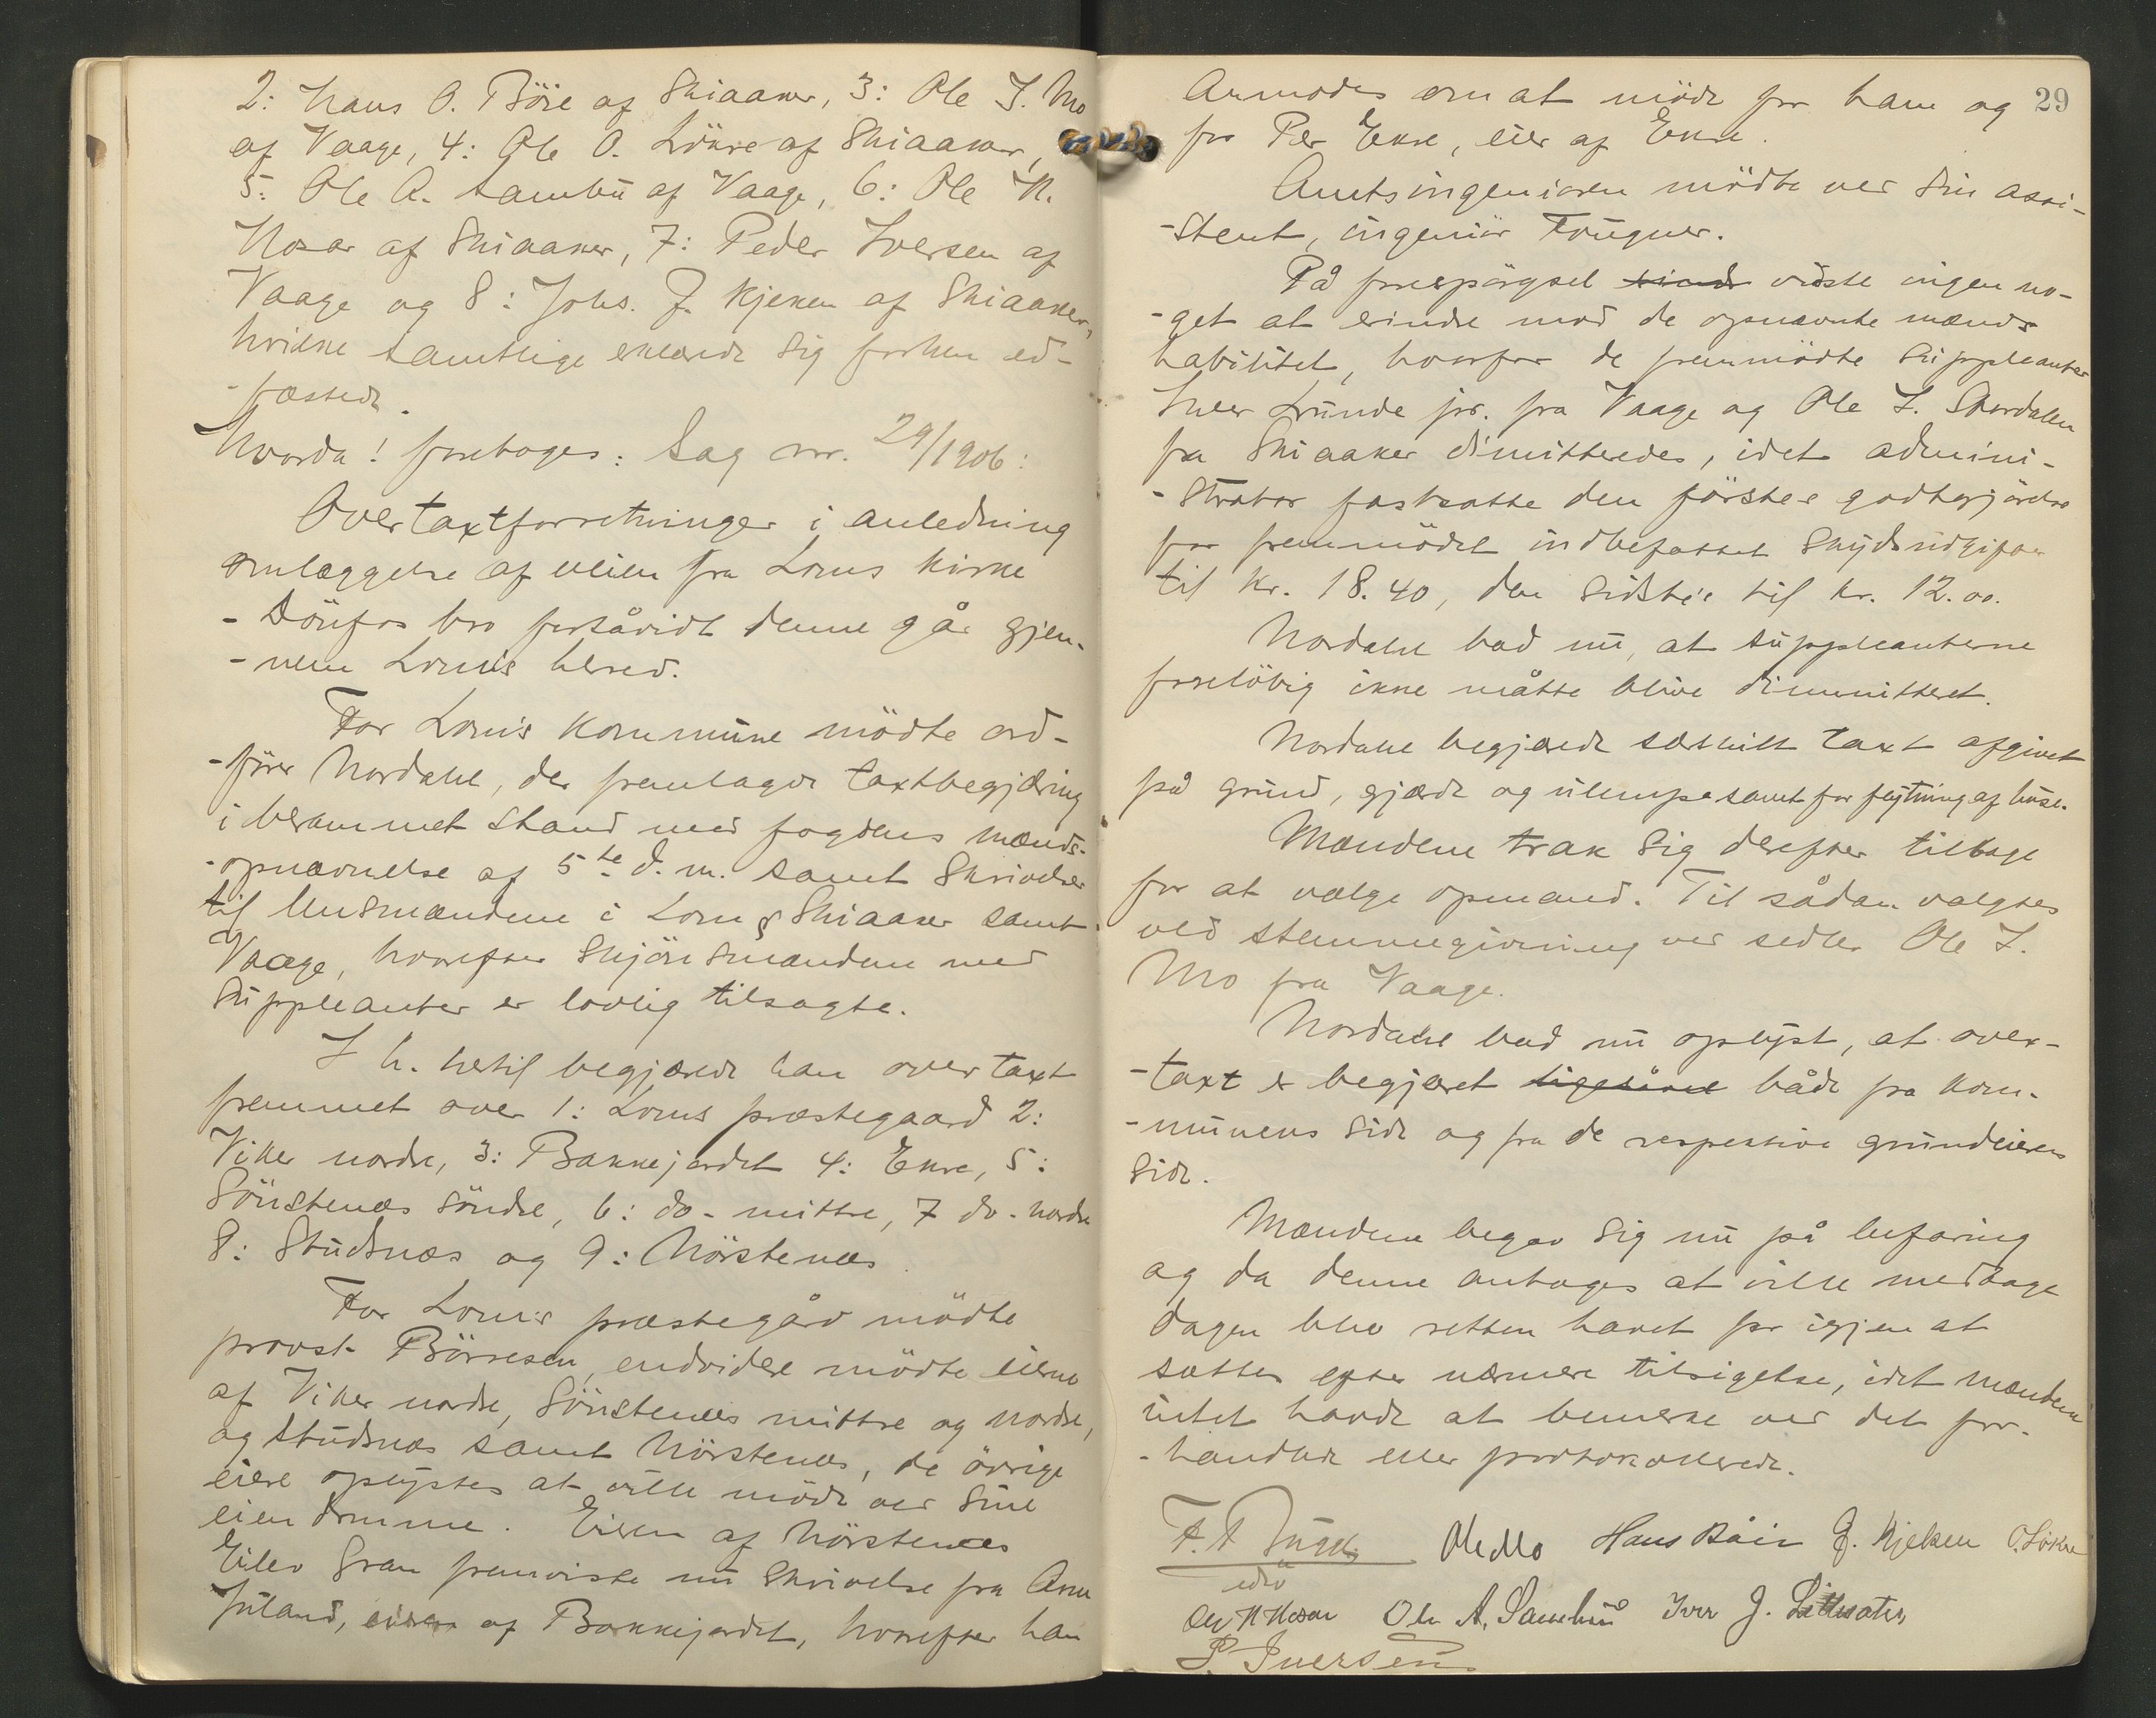 2: Hans O. Böie af Skiaaker, 3: Ole I. Mo
af Vaage, 4: Ole O. Lökre af Skiaaker,
5: Ole A. Sambu af Vaage, 6: Ole N.
Hosar af Skiaaker, 7: Peder Iversen af
Vaage og 8: Johs. J. Kjeken af Skiaaker,
hvilke samtlige erklærede sig forhen ed-
-fæstede.
Hvorda! foretoges: Sag nr. 29/1906:
Overtaxtforretninger i anledning
omlæggelse af veien fra Loms kirke
- Dönfos bro forsåvidt denne går gjen-
-nem Lom's herred.
For Lom's kommune mödte ord-
-förer Nordahl, der fremlagde taxtbegjæring
i berammet stand med fogdens mænds-
-opnævnelse af 5te d. m. samt skrivelser
til lensmændene i Lom & Skiaaker samt
Vaage, hvorefter skjönsmændene med
suppleanter er lovlig tilsagte.
I h. hertil begjærede han overtaxt
fremmet over 1: Loms præstegaard 2:
Viker nordre, 3: Bakkejordet 4: Ekre, 5:
Sönstenæs söndre, 6: do - mittre, 7 do - nordre
8: Studsnæs og 9: Nörstenæs.
For Lom's præstegård mödte
provst Börresen, endvidere mödte eierne
af Viker nordre, Sönstenæs mittre og nordre,
og Studsnæs samt Nörstenæs, de övrige
eiere oplystes at ville möde ved sine
eiendomme. Eieren af Nörstenæs
Eilev Gran fremviste nu skrivelse fra Anne
Juland, eier af Bakkejordet, hvorefter han
29
anmodes om at möde for ham og
for Per Ekre, eier af Ekre.
Amtsingeniøren mödte ved sin assi-
-stent, ingeniör Fougner.
På forespörgsel vidste ingen no-
-get at erindre mod de opnævnte mænds
habilitet, hvorfor de fremmödte suppleanter
Iver Sünde jr. fra Vaage og Ole I. Skordalen
fra Skiaaker dimitteredes, idet admini-
-strator fastsatte den förstes godtgjörelse
for fremmödet indbefattet skydsudgifter
til kr. 18.40, den sidste's til kr. 12.00.
Nordahl bad nu, at suppleanterne
foreløbig ikke måtte blive dimmitteret.
Nordahl begjærede særskilt taxt afgivet
på grund, gjærde og ulempe samt for flytning af huse.
Mændene trak sig derefter tilbage
for at vælge opmand. Til sådan valgtes
ved stemmegivning ved sedler Ole I.
Mo fra Vaage.
Nordahl bad nu oplyst, at over-
-taxt er begjæret både fra kom-
-munens side og fra de respektive grundeieres
side.
Mændene begav sig nu på befaring
og da denne antages at ville medtage
dagen blev retten hævet for igjen at
sættes efter nærmere tilsigelse, idet mændene
intet havde at bemerke ved det for-
-handlede eller protokollerede.
Ole Mo Hans Böie J. Kjeken O. Lökre
Ole N Hosar Ole A. Sambu Iver J.
P. Iversen